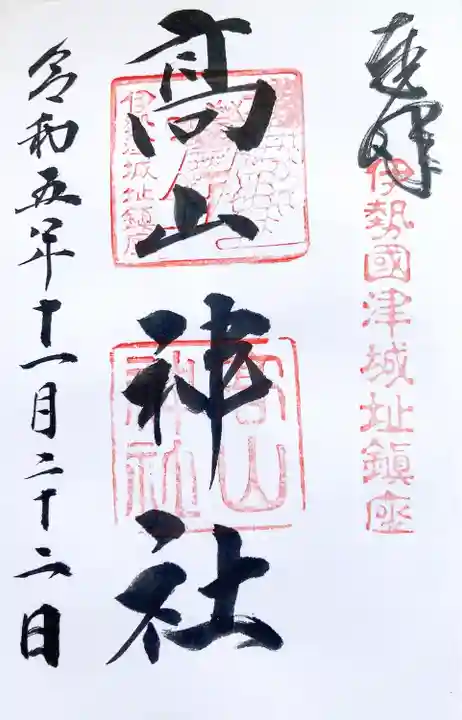 奉拝
伊勢國津城址鎮座
高山神社
高山神社
令和五年十一月二十二日